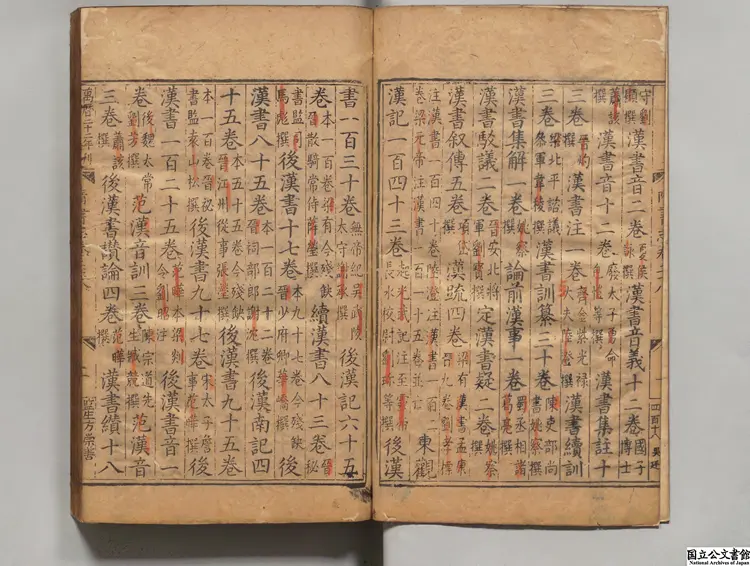 守劉顯撰漢書音二卷夏侯詠撰漢書音義十二卷國子博士
蕭該撰漢書音十二卷廢太子勇命包愷等撰漢書集註十
三卷晉灼撰漢書注一卷齊金紫光祿大夫陸澄撰漢書續訓
三卷梁北平諮議參軍韋稜撰漢書訓纂三十卷陳吏部尚書姚察撰
漢書集解一卷姚察撰論前漢事一卷蜀丞相諸葛亮撰
漢書駮議二卷晉安北將軍劉寶撰定漢書疑二卷姚察撰
漢書叙傳五卷項岱撰漢疏四卷梁有漢書孟康音九卷劉孝標
注漢書一百四十卷陸澄注漢書一百二卷梁元帝注漢書一百一十五卷並亡東觀
漢記一百四十三卷起光武記注至靈帝長水校尉劉珍等撰後漢
書一百三十卷無帝紀吳武陵太守謝承撰後漢記六十五
卷本一百卷梁有今殘缺晉散騎常侍薛瑩撰續漢書八十三卷晉秘
書監司馬彪撰後漢書十七卷本九十七卷今殘缺晉少府卿華嶠撰後
漢書八十五卷本一百二十二卷晉祠部郎謝沈撰後漢南記四
十五卷本五十五卷今殘缺晉江州從事張瑩撰後漢書九十五卷
本一百卷晉秘書監袁山松撰後漢書九十七卷宋太子詹事范曄撰後
漢書一百二十五卷范曄本梁剡令劉昭注後漢書音一
卷後魏太常劉芳撰范漢音訓二卷陳宗道先生臧競撰范漢音
三卷蕭該撰後漢書讚論四卷范曄撰漢書纘十八
萬曆二十二年刊
監生方崇書
国立公文書館
National Archives of Japan